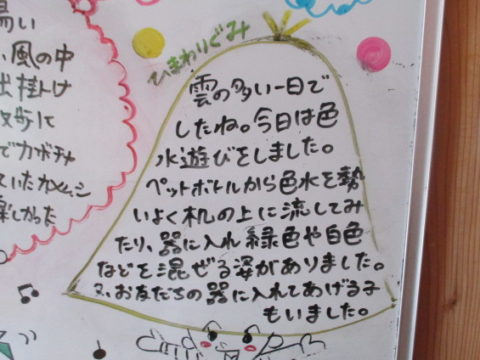 高い
い風の中
出掛け
散歩に
でカボチャ
ていた
楽しかった
ひまわりぐみ
雲の多い一日で
したね。今日は色
水遊びをしました。
ペットボトルから色水を勢
いよく机の上に流してみ
たり、器に入れ緑色や白色
などを混ぜる姿がありました。
又、お友だちの器に入れてあげる子
もいました。